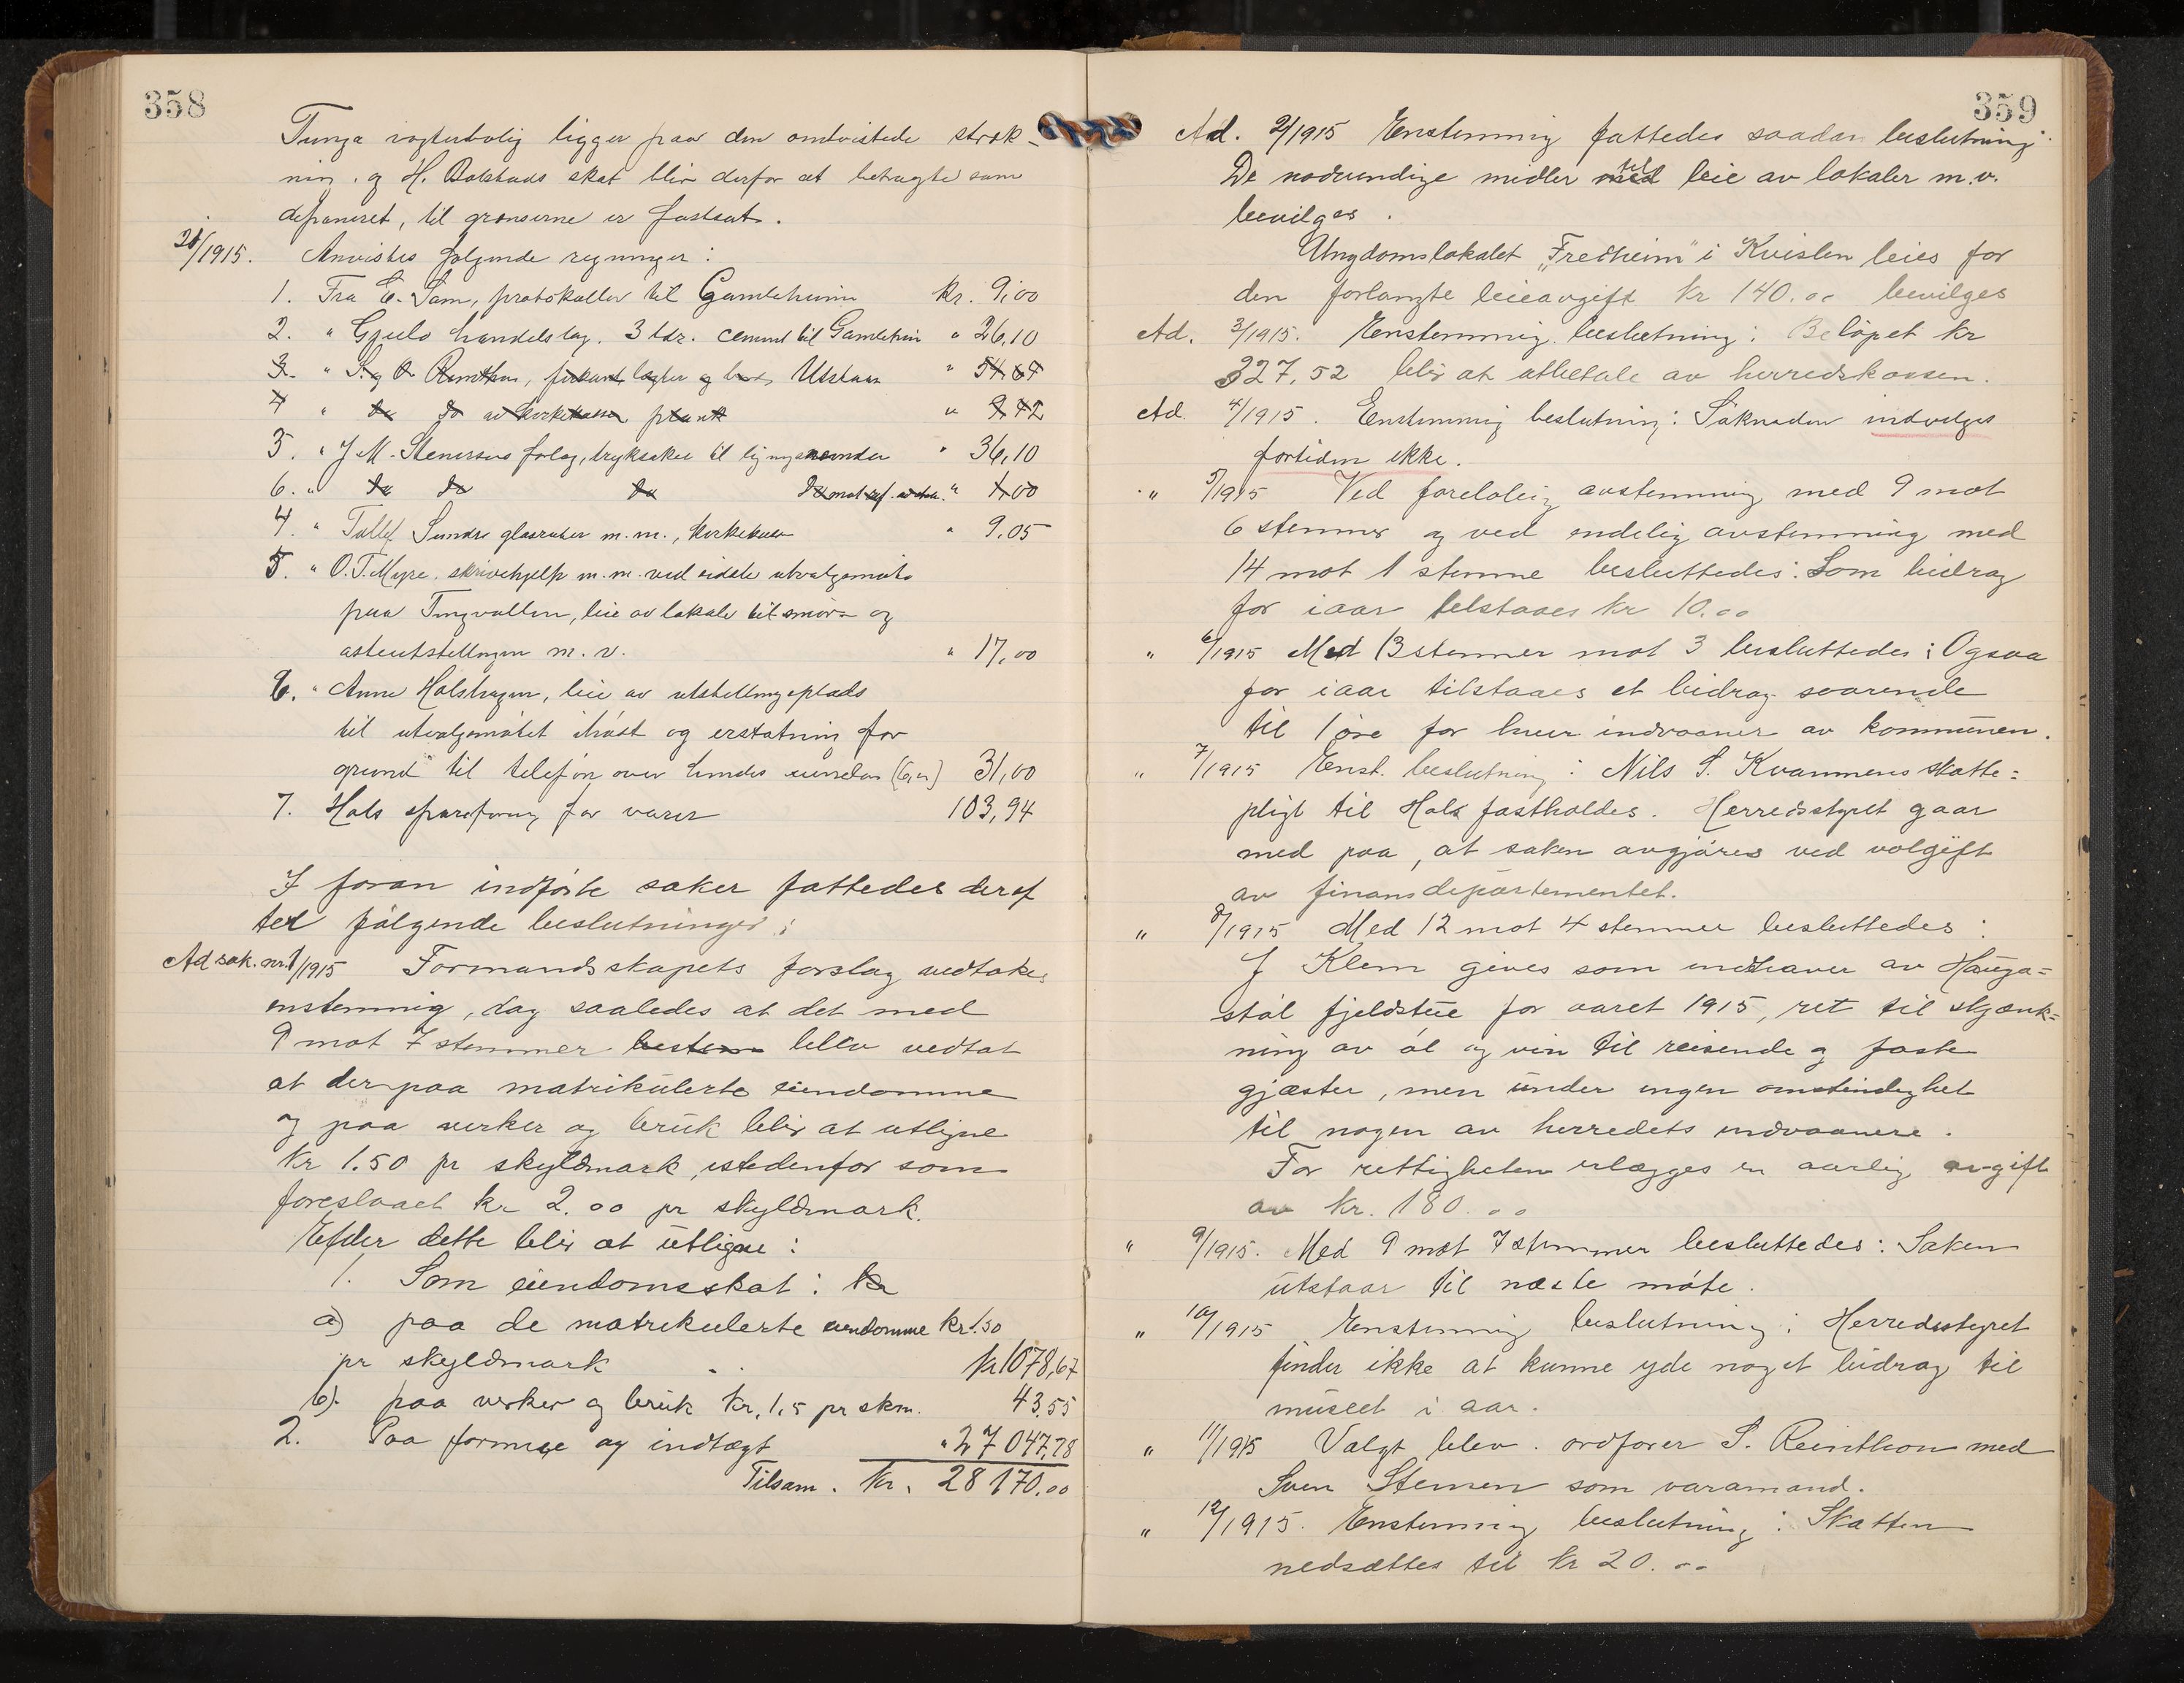 358
Tunga vogterbolig ligger paa den omtvistede stræk-
ning. og H. Bolstads skat blir derfor at betragte som
deponeret, til grænserne er fastsat.
21/1915. Anvistes følgende regninger:
1. Fra E. Sam, protokoller til Gamleheim kr. 9,00
2. " Gjeilo handelslag. 3 tdr. cement til Gamleheim " 26,10
3. " S. og O. Reinthon, Ustaas " 54,67
4 " do do av kirkekassen plank " 9,72
5. " J. M. Stenersens forlag, tryksaker til ligningsnevnden " 36,10
6. " do do do do " 1,00
4. " Tollef Sundre glasruter m.m., kirkekassen " 9,05
5. " O. T. Myre. skrivehjelp m.m. ved sidste utvalgsmøte
paa Tingvollen, leie av lokale til smør- og
osteutstillingen m. v. " 17,00
6. " Anne Halshagen, leie av utstillingsplads
til utvalgsmøtet ihøst og erstatning for
grund til telefon over hendes eiendom (6,00) 31,00
7. Hols spareforening for varer 103,94
I foran indførte saker fattedes deref
ter følgende beslutninger:
Ad sak. nr. 1/1915 Formandsskapets forslag vedtokes
enstemmig, dog saaledes at det med
9 mot 7 stemmer bestem blev vedtat
at der paa matrikulerte eiendomme
og paa verker og bruk blir at utligne
kr 1.50 pr skyldmark, istedenfor som
foreslaaet kr 2.00 pr skyldmark.
Efter dette blir at utligne:
1. Som eiendomsskat: kr
a) paa de matrikulerte eiendomme kr 1.50
pr skyldmark kr 1078,67
b). paa verker og bruk kr. 1,5 pr skm. 43,55
2. Paa formue og indtægt " 27 047,78
Tilsam. kr. 28 170.00
359
Ad. 2/1915 Enstemmig fattedes saadan beslutning:
De nødvendige midler med til leie av lokaler m.v.
bevilges.
Ungdomslokalet "Fredheim" i Kvislen leies for
den forlangte leieavgift kr 140.00 bevilges
Ad. 3/1915. Enstemmig beslutning: Beløpet kr
327,52 blir at utbetale av herredskassen.
Ad. 4/1915. Enstemmig beslutning: Søknaden indvilges
fortiden ikke.
" 5/1915 Ved foreløbig avstemning med 9 mot
6 stemmer og ved endelig avstemning med
14 mot 1 stemme besluttedes: Som bidrag
for iaar tilstaaes kr 10.00
" 6/1915 Med 13 stemmer mot 3 besluttedes: Ogsaa
for iaar tilstaaes et bidrag svarende
til 1 øre for hver indvaaner av kommunen.
" 7/1915 Enst. beslutning: Nils S. Kvammens skatte=
pligt til Hol fastholdes. Herredsstyret gaar
med paa, at saken avgjøres ved volgift
av finansdepartementet.
" 8/1915 Med 12 mot 4 stemmer besluttedes:
J Klem gives som indehaver av Hauga=
støl fjeldstue for aaret 1915, ret til skjænk=
ning av øl og vin til reisende og faste
gjæster, men under ingen omstendighet
til nogen av herredets indvaanere.
For rettigheten erlægges en aarlig avgift
av kr. 180.00
" 9/1915. Med 9 mot 7 stemmer besluttedes: Saken
utstaar til næste møte.
" 10/1915 Enstemmig beslutning: Herredsstyret
finder ikke at kunne yde noget bidrag til
museet i aar.
" 11/1915 Valgt blev. ordfører S. Reinthon med
Sven Stenersen som varamand.
" 12/1915. Enstemmig beslutning: Skatten
nedsættes til kr 20.00